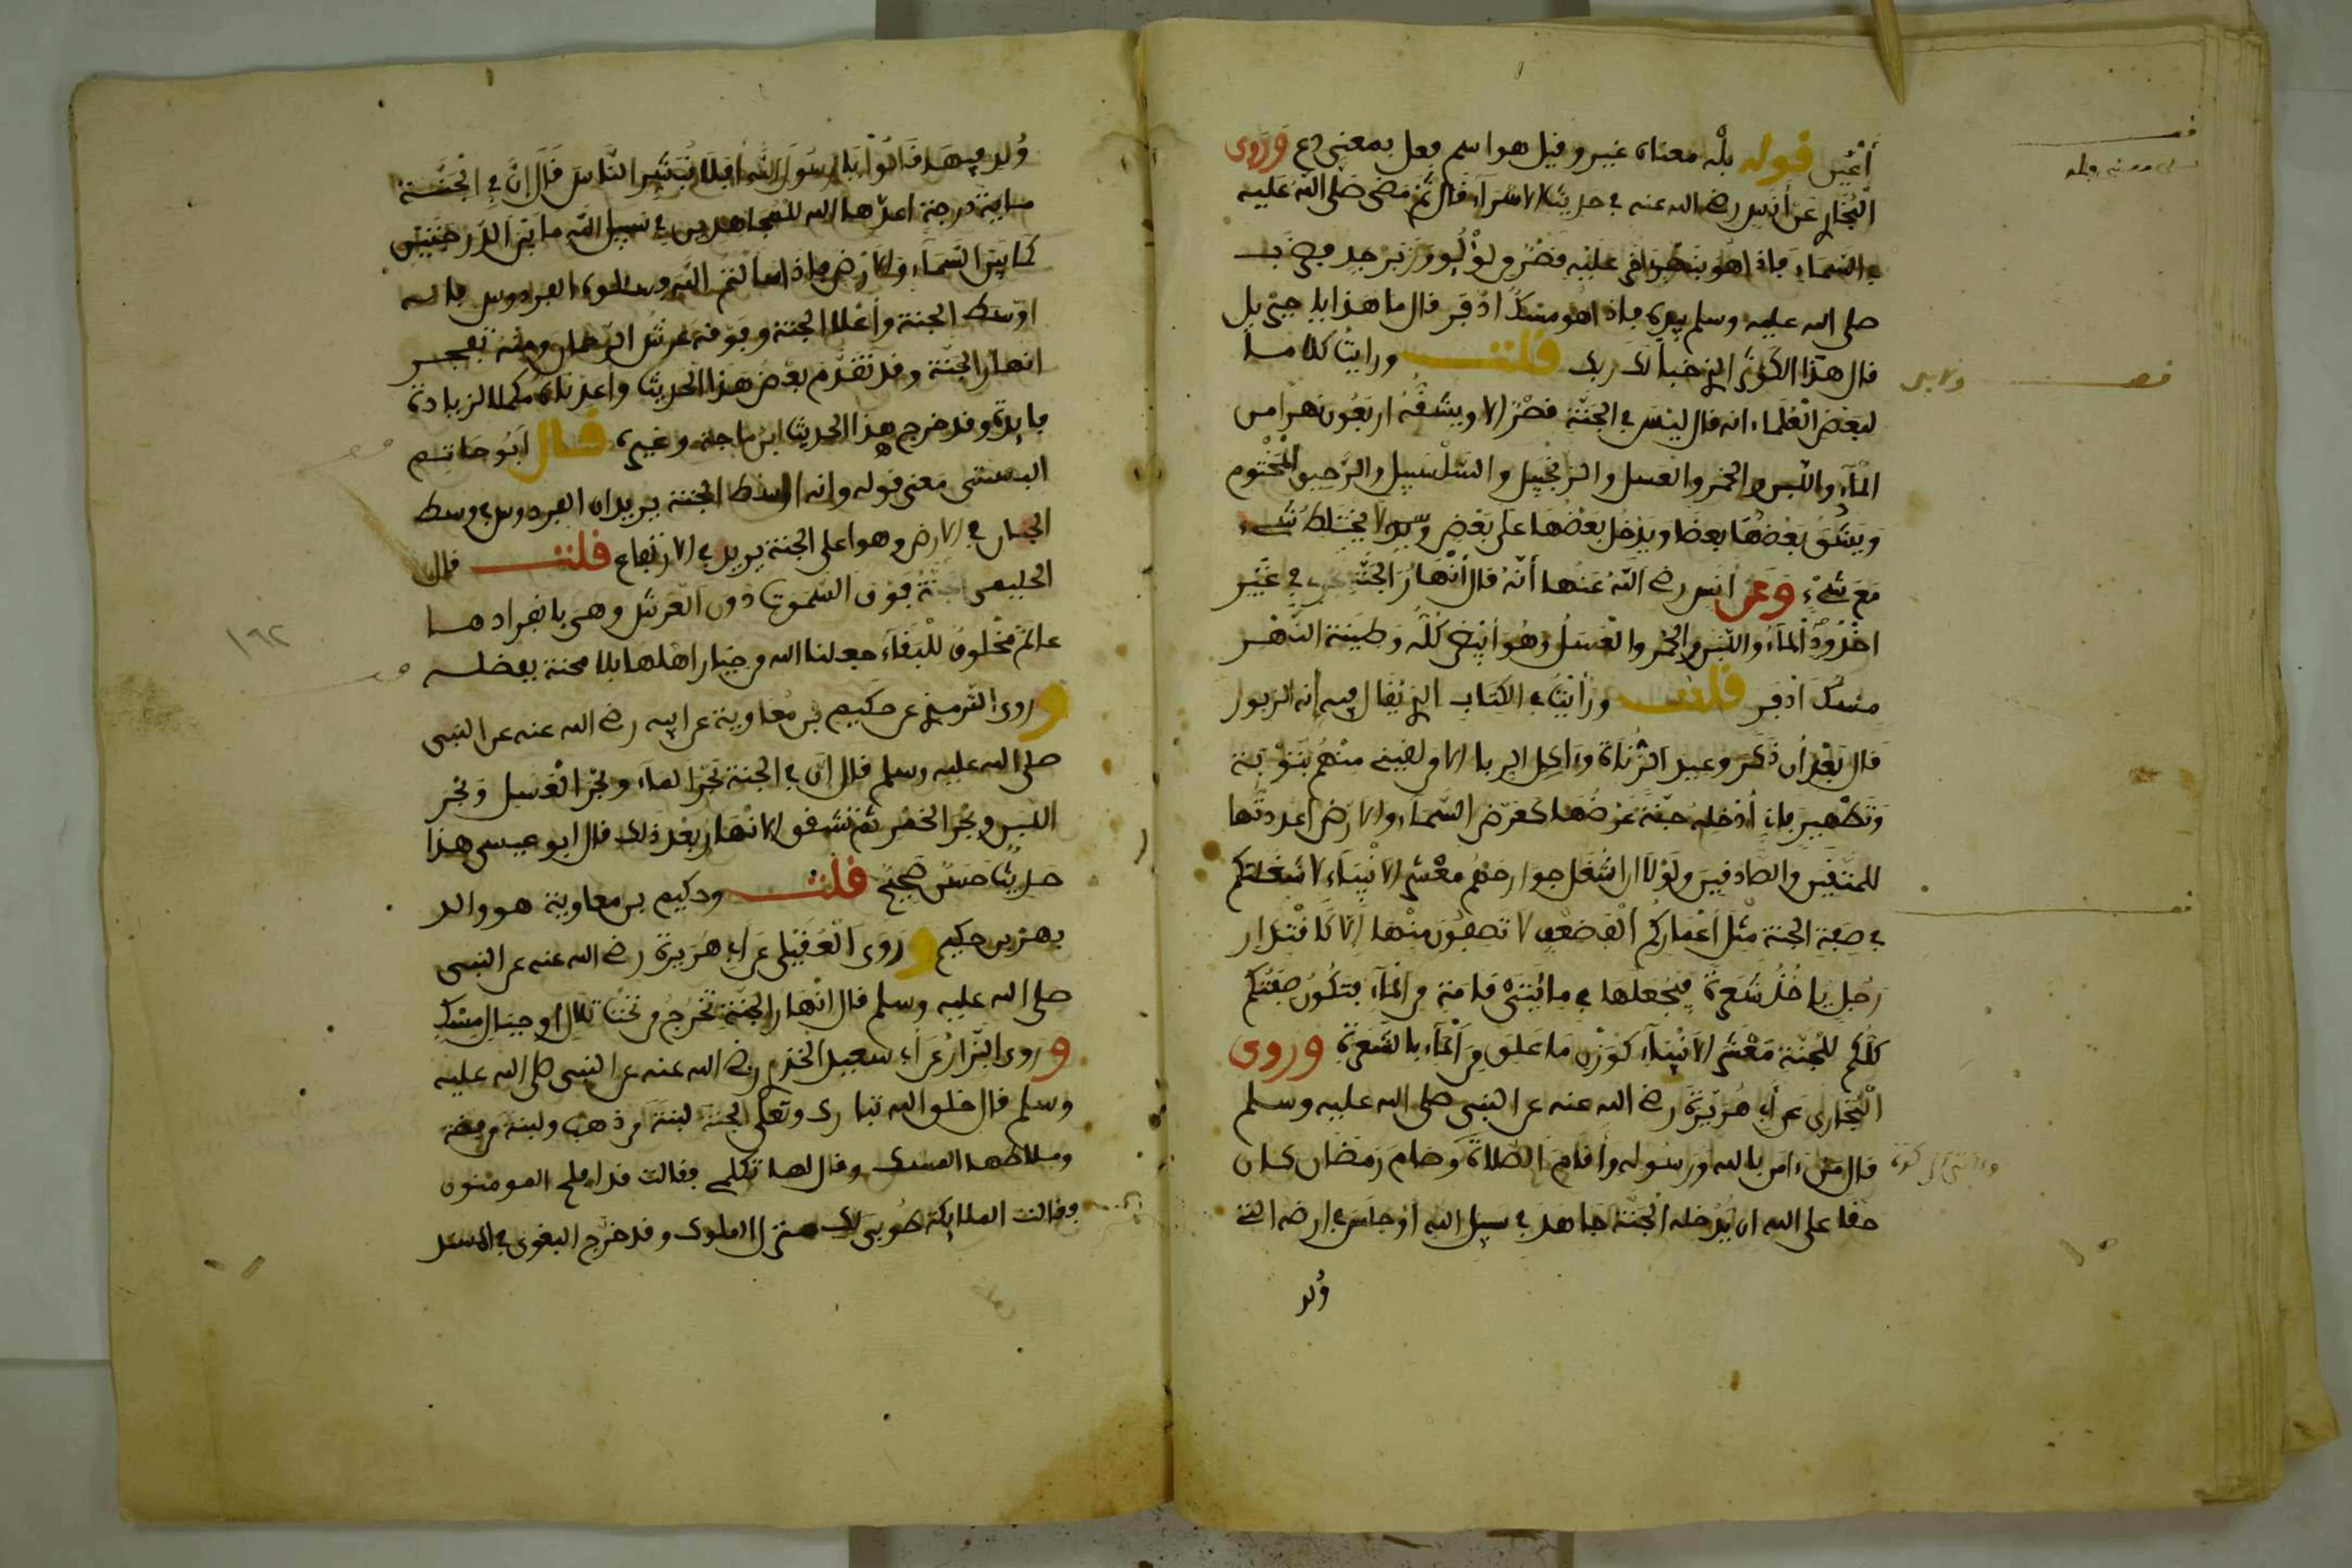 أَعْيُن قوله بَلْه معناه غير وقيل هو اسم فعل بمعنى دع وَرَوَى
البُخَارِي عَنْ أَنَسٍ رضي الله عنه في حديث الاسْرَآءِ قَالَ ثُمَّ مَضَى صَلَّى اللَّهُ عَلَيْه
في السَّمَاءِ فإذا هُوَ بِنَهْرٍ آخَر عَلَيْهِ قَصْرٌ مِن لُؤْلُؤٍ وَزَبَرْجَدٍ فضَرَب
صلى الله عليه وسلم يده فإذا هو مِسْكٌ اذْفَر قال ما هذا يا جبريل
قال هذا الكوثر الذي خبأ لك ربك قلت ورايت كلاما
لبَعْضِ العُلَمَاء انه قال ليْسَ في الجَنَّة قصْرٌ الا ويشقُّهُ اربَعُون نهرا من
المآء واللبن والخمر والعسل والزنجبيل والسَّلْسَبِيل والرَّحِيق المخْتُوم
وَيَشُقُّ بَعْضُهَا بعضا ويَدْخُل بَعْضُهَا على بَعْضٍ ولا يختلط شيء
مَعَ شَيْءٍ وَعَن أنس رضي اللَّهُ عَنْهُ أنَّهُ قَالَ أَنْهَارُ الجَنَّةِ تجري في غَيْرِ
اخْدُودٍ المآءُ واللبن والخمر والعَسَلُ وَهُوَ أبْيَض كُلُّه وَطِينَة النَّهْر
مِسْكٌ اذفر قلت ورَأَيْتُ في الكِتَاب الذي يُقال فيه إنه الزبور
قَال بَعْدَ أن ذَكَرَ وعيد الزُّناة وَآكِل الربا إلا من لقيني منْهُم بِتَوْبَة
وَتَطْهِير فإني أُدْخله جَنَّةً عَرْضُهَا كعَرْض السَّمآءِ والارْض أعددتُّها
للمُتَّقِين والصَّادقينَ ولَوْلَا اشتغال جوارحكم معْشر الانْبِيَاء لا شغلتكم
في صِفَةِ الجنة مثْل أعْمَاركُم الْفَ ضعْفٍ لا تصِفُون منْهَا إلَّا كَاقتدار
رَجُل يَاخُذُ شَعَرةً فيَجْعَلُهَا في مائَتَيْ قامة من المآء فتكُونُ صِفَتُكُم
كلكُم للجنّة مَعْشر الانْبِيَآء كوَزْن مَا علق من المآء بالشَّعرةِ وروى
الْبُخَارِي عَن أبي هُرَيْرَةَ رضي الله عنه عن النبي صلى الله عليه وسلم
قال مَنْ ءامن بالله ورَسُوله وأقامَ الصَّلاةَ وَصَامَ رَمَضَان كان
حقا على الله ان يُدْخله الجنَّةَ جاهَدَ في سبيل الله أوْ جلَسَ في ارضه التي
وُلِد
وُلِدَ فِيهَا قَالُوا يَا رَسُولَ اللَّهِ أَفَلَا نُبَشِّرُ النَّاسَ قَالَ إِنَّ فِي الْجَنَّة
مائة درجة اعدّها الله للمجاهدين في سبيل الله ما بَيْنَ الدَّرجَتَيْن
كمَا بَيْنَ السَّمَآءِ وَالارْض فإذا سَالتُم اللهَ فسلوه الفردوس فإنه
اوْسَط الجنة وأعْلا الجنّة وفوْقه عَرْشُ الرَّحمان ومنه تفجر
انهار الجنّة وقد تقَدَّم بَعْضُ هَذا الحديث وأعدناه مكملا لزيادة
فايدة وقد خرج هذا الحديث ابن ماجة وغيره قال أبُو حَاتم
البستي مَعْنى قوله وانه اوسط الجنة يريد ان الفردوس في وسط
الجنان في الارض وهو اعلى الجنة يريد في الارتفاع قلت قال
الحليمي الجنَّةُ فَوْقَ السَّموَات دُون العَرْش وهي بانفرادها
عالمٌ مخْلوقٌ للْبَقَآءِ جعلنا الله من خيار اهْلها بلا محنة بفضله
وروى الترمذي عن حكيم بن مُعَاوية عن ابيه رضي الله عنه عن النبي
صلى الله عليه وسلم قال إنَّ في الجنة بَحْرَ الماء وبَحْرَ العَسَل وَبَحْر
اللبن وبَحْر الخمْر ثُمَّ تشقَق الانْهَار بَعْد ذلك قال ابو عيسى هذا
حديثٌ حَسَن صَحيحٌ قلت وحكيم بن معاوية هو والد
بهز بن حكيم ورَوَى العُقَيْلِي عَن أبِي هُرَيرة رضي الله عنه عن النبي
صلى الله عليه وسلم قال انْهَارُ الجَنَّةِ تَخْرُجُ من تَحْتِ تلال او جبَال مِسْك
وروى البَزَّارُ عَن أبي سعيد الخدري رضي الله عنه عن النبي صلى الله عليه
وسلم قال خلق الله تبارك وتعالى الجنة لبنةً من ذهب ولبنة من فضة
وملاطها المسك وقال لها تكلمي فقالت قد افلح المومنون
فقالت الملايكة طُوبى لك منزل الملوك وقد خرج البغوي في المسند
١٦٢